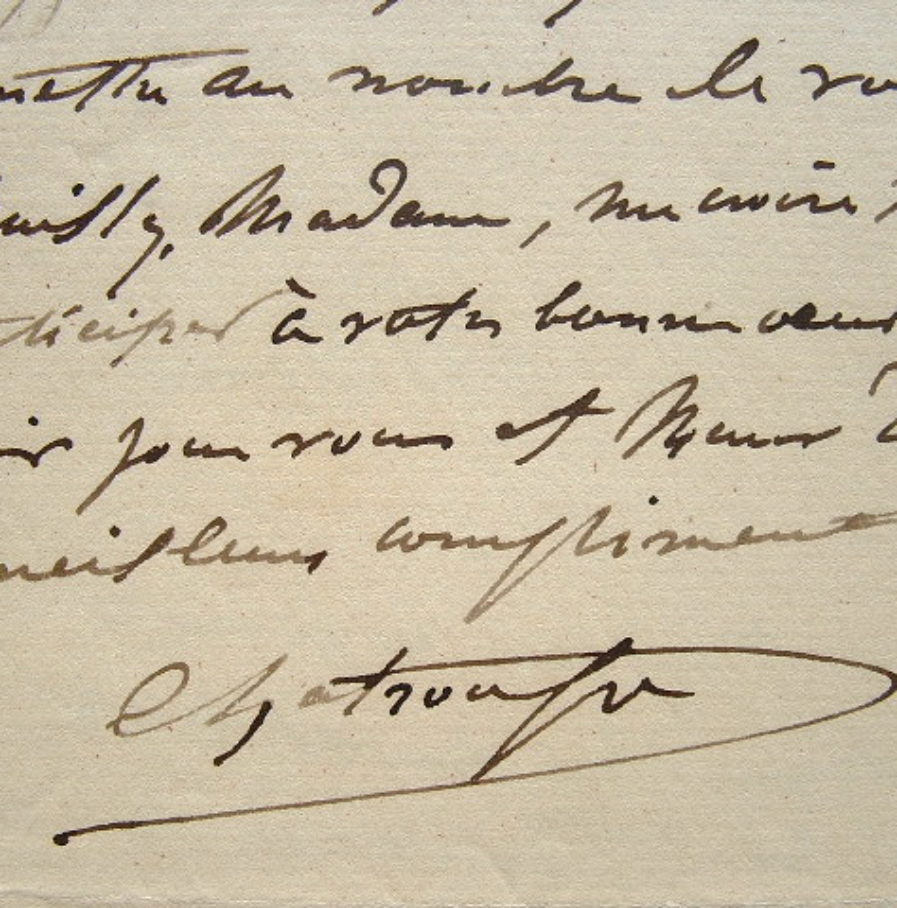 mettre au nombre de vo
uillez, Madame, me croire
ticiper à votre bonne oeuv
ir pour vous et
meilleurs compliment
Chatrousse